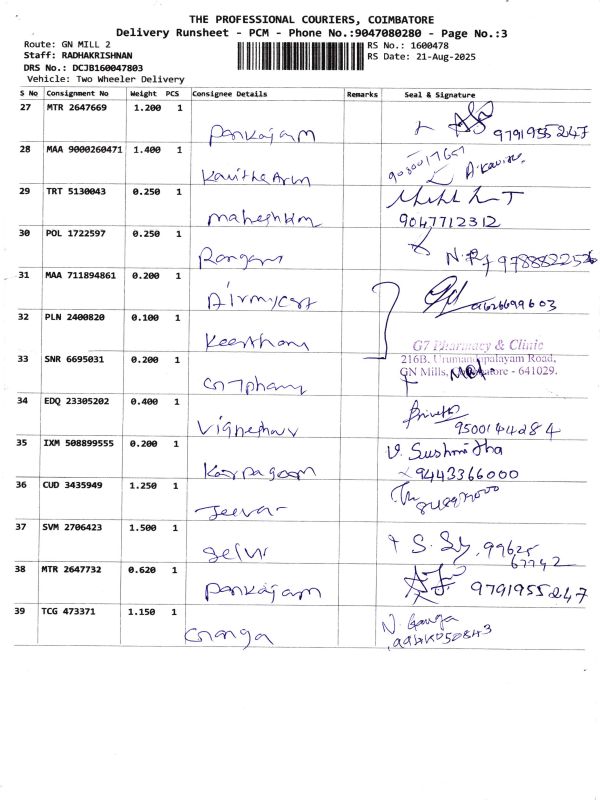 THE PROFESSIONAL COURIERS, COIMBATORE
Delivery Runsheet - PCM - Phone No.:9047080280 - Page No.:3
Route: GN MILL 2
Staff: RADHAKRISHNAN
DRS No.: DCJB160047803
Vehicle: Two Wheeler Delivery
RS No.: 1600478
RS Date: 21-Aug-2025
S No Consignment No Weight PCS Consignee Details Remarks Seal & Signature
27 MTR 2647669 1.200 1
Pankajam 9791955247
28 MAA 9000260471 1.400 1
Kavitha Arun
29 TRT 5130043 0.250 1
Maheshkm 9047712312
30 POL 1722597 0.250 1
Rangam
31 MAA 711894861 0.200 1
9626699603
32 PLN 2400820 0.100 1
Keerthana
G7 Pharmacy & Clinic
33 SNR 6695031 0.200 1
216B, Urumandapalayam Road,
GN Mills, Coimbatore - 641029.
G7 Pharmacy
34 EDQ 23305202 0.400 1
9500144284
35 IXM 508899555 0.200 1
V. Sushmitha
Karpagam 9443366000
36 CUD 3435949 1.250 1
Jeeva
37 SVM 2706423 1.500 1
Selvi 99625
67742
38 MTR 2647732 0.620 1
Pankajam 9791955247
39 TCG 473371 1.150 1
Ganga N. Ganga